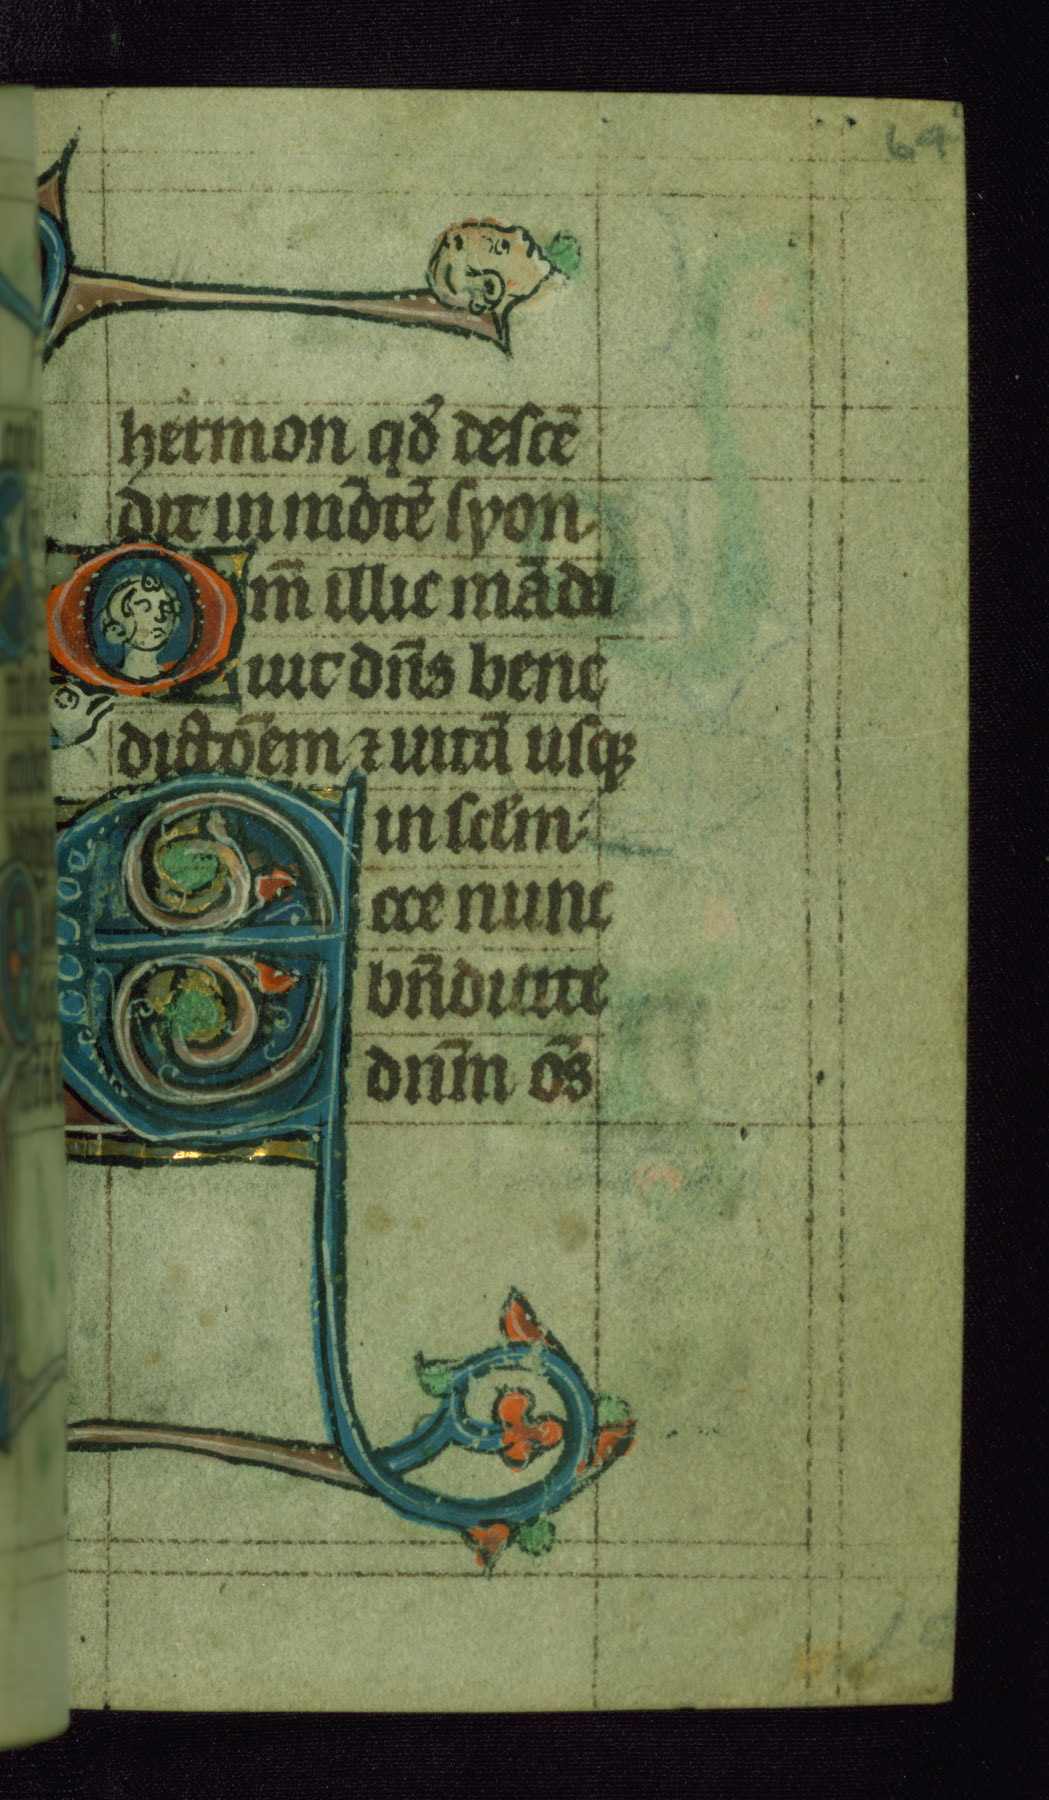 64
hermon qď descē
dit in mōtē syon.
Qm̄ illic mādā
uit dn̄s bene
dictōem ⁊ uitā usqꝫ
in sclm:
Ecce nunc
bn̄dicite
dnm̄ om̄s